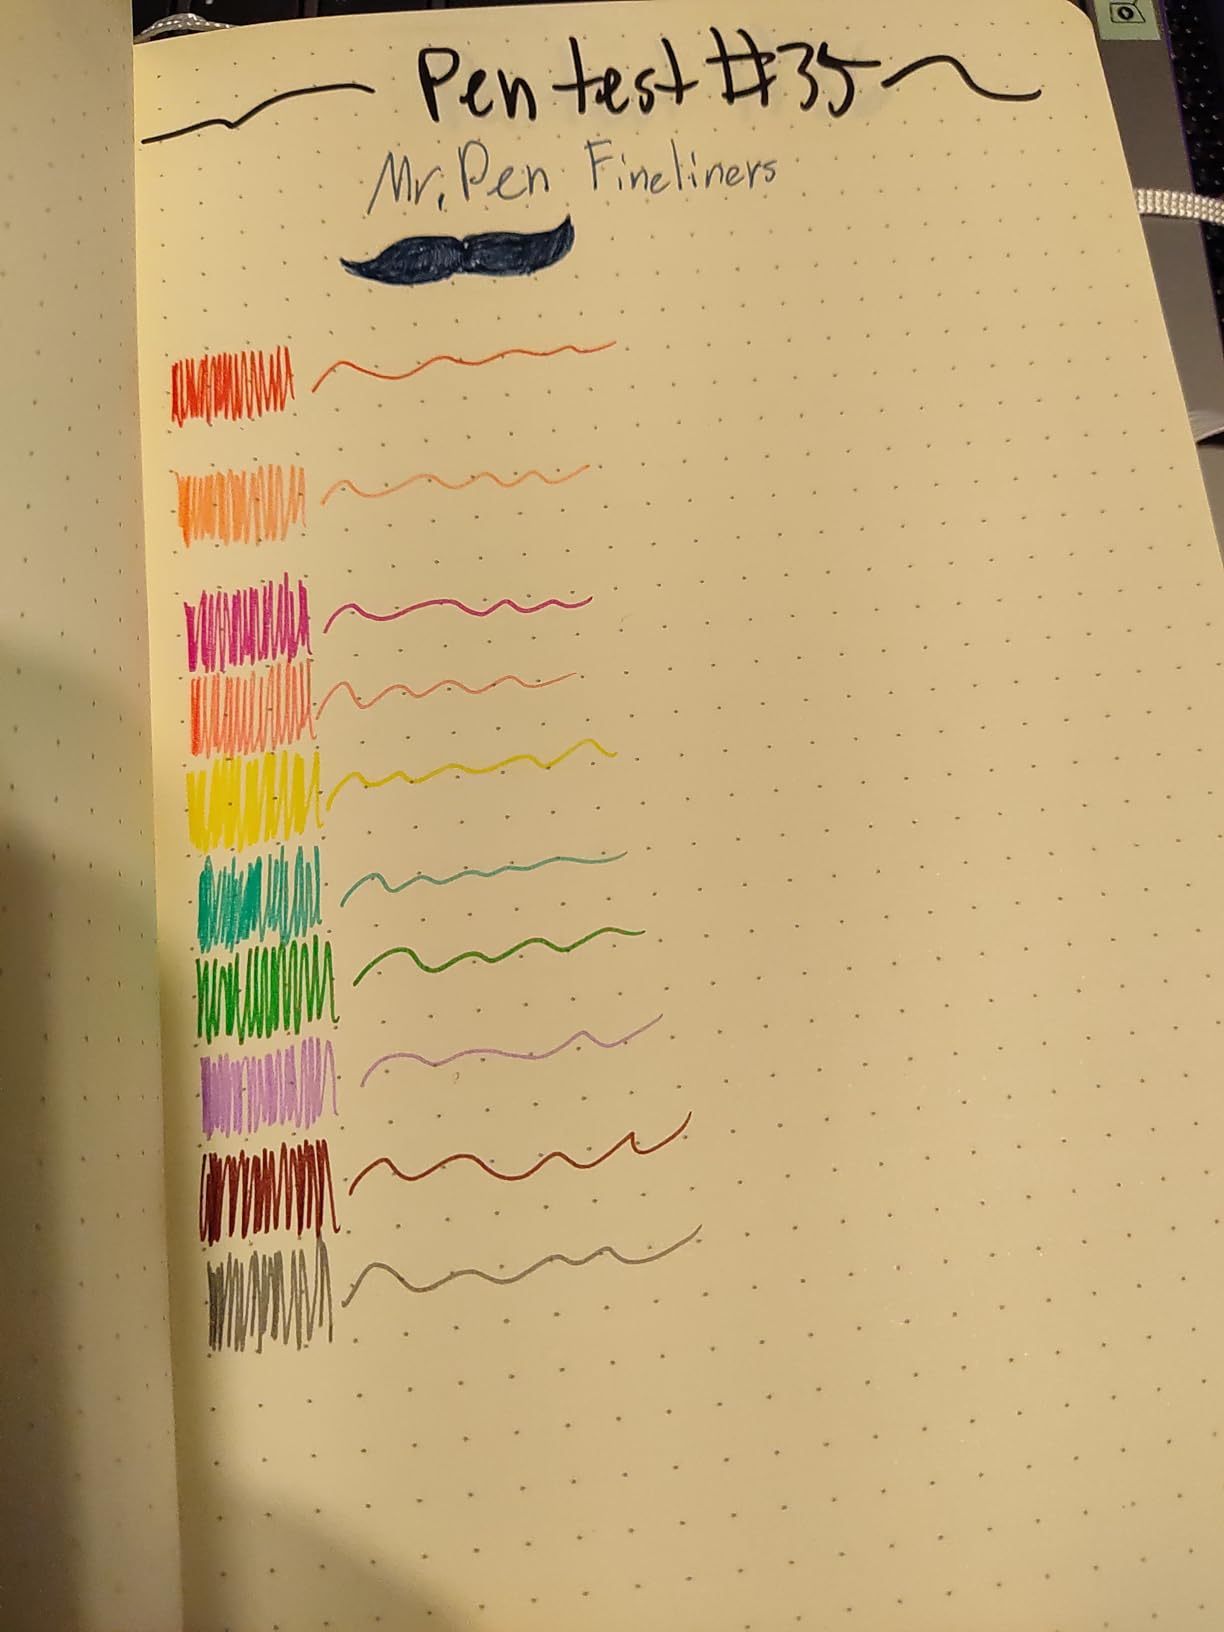 Pen test #35
Mr. Pen Fineliners